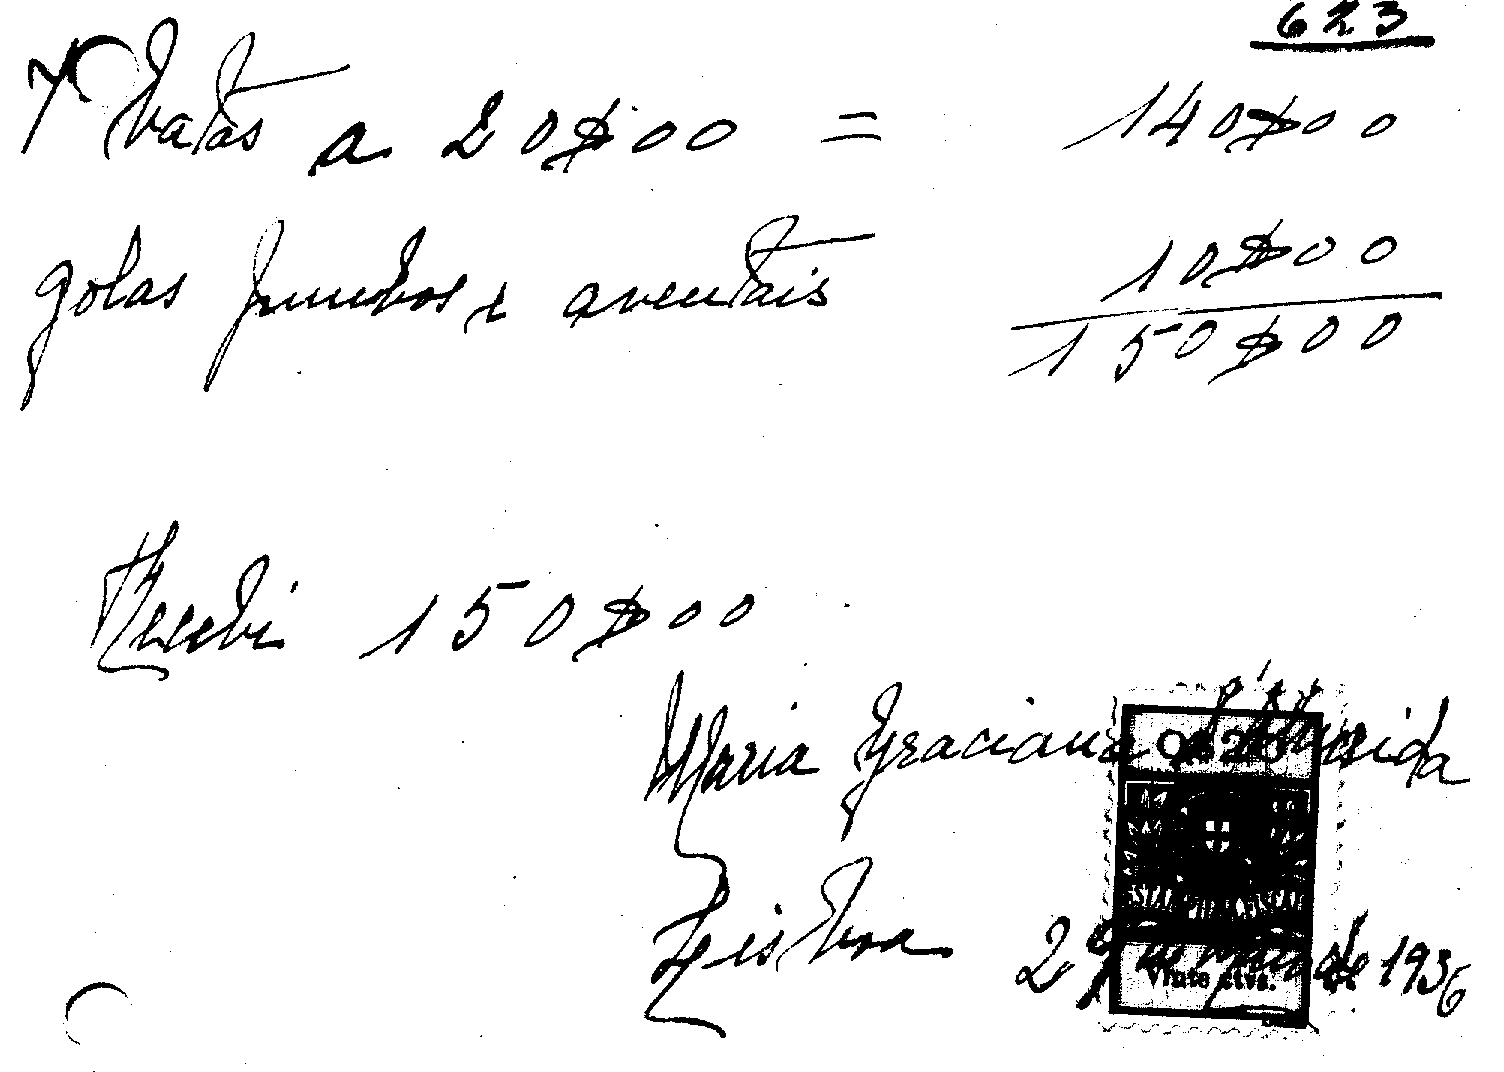 623
7 batas a 20$00 = 140$00
golas punhos e aventais 10$00
150$00
Recebi 150$00
Maria Graciana d'Almeida
ESTAMPILHA FISCAL
Lisboa 29 de maio de 1936
Vinte ctvs.